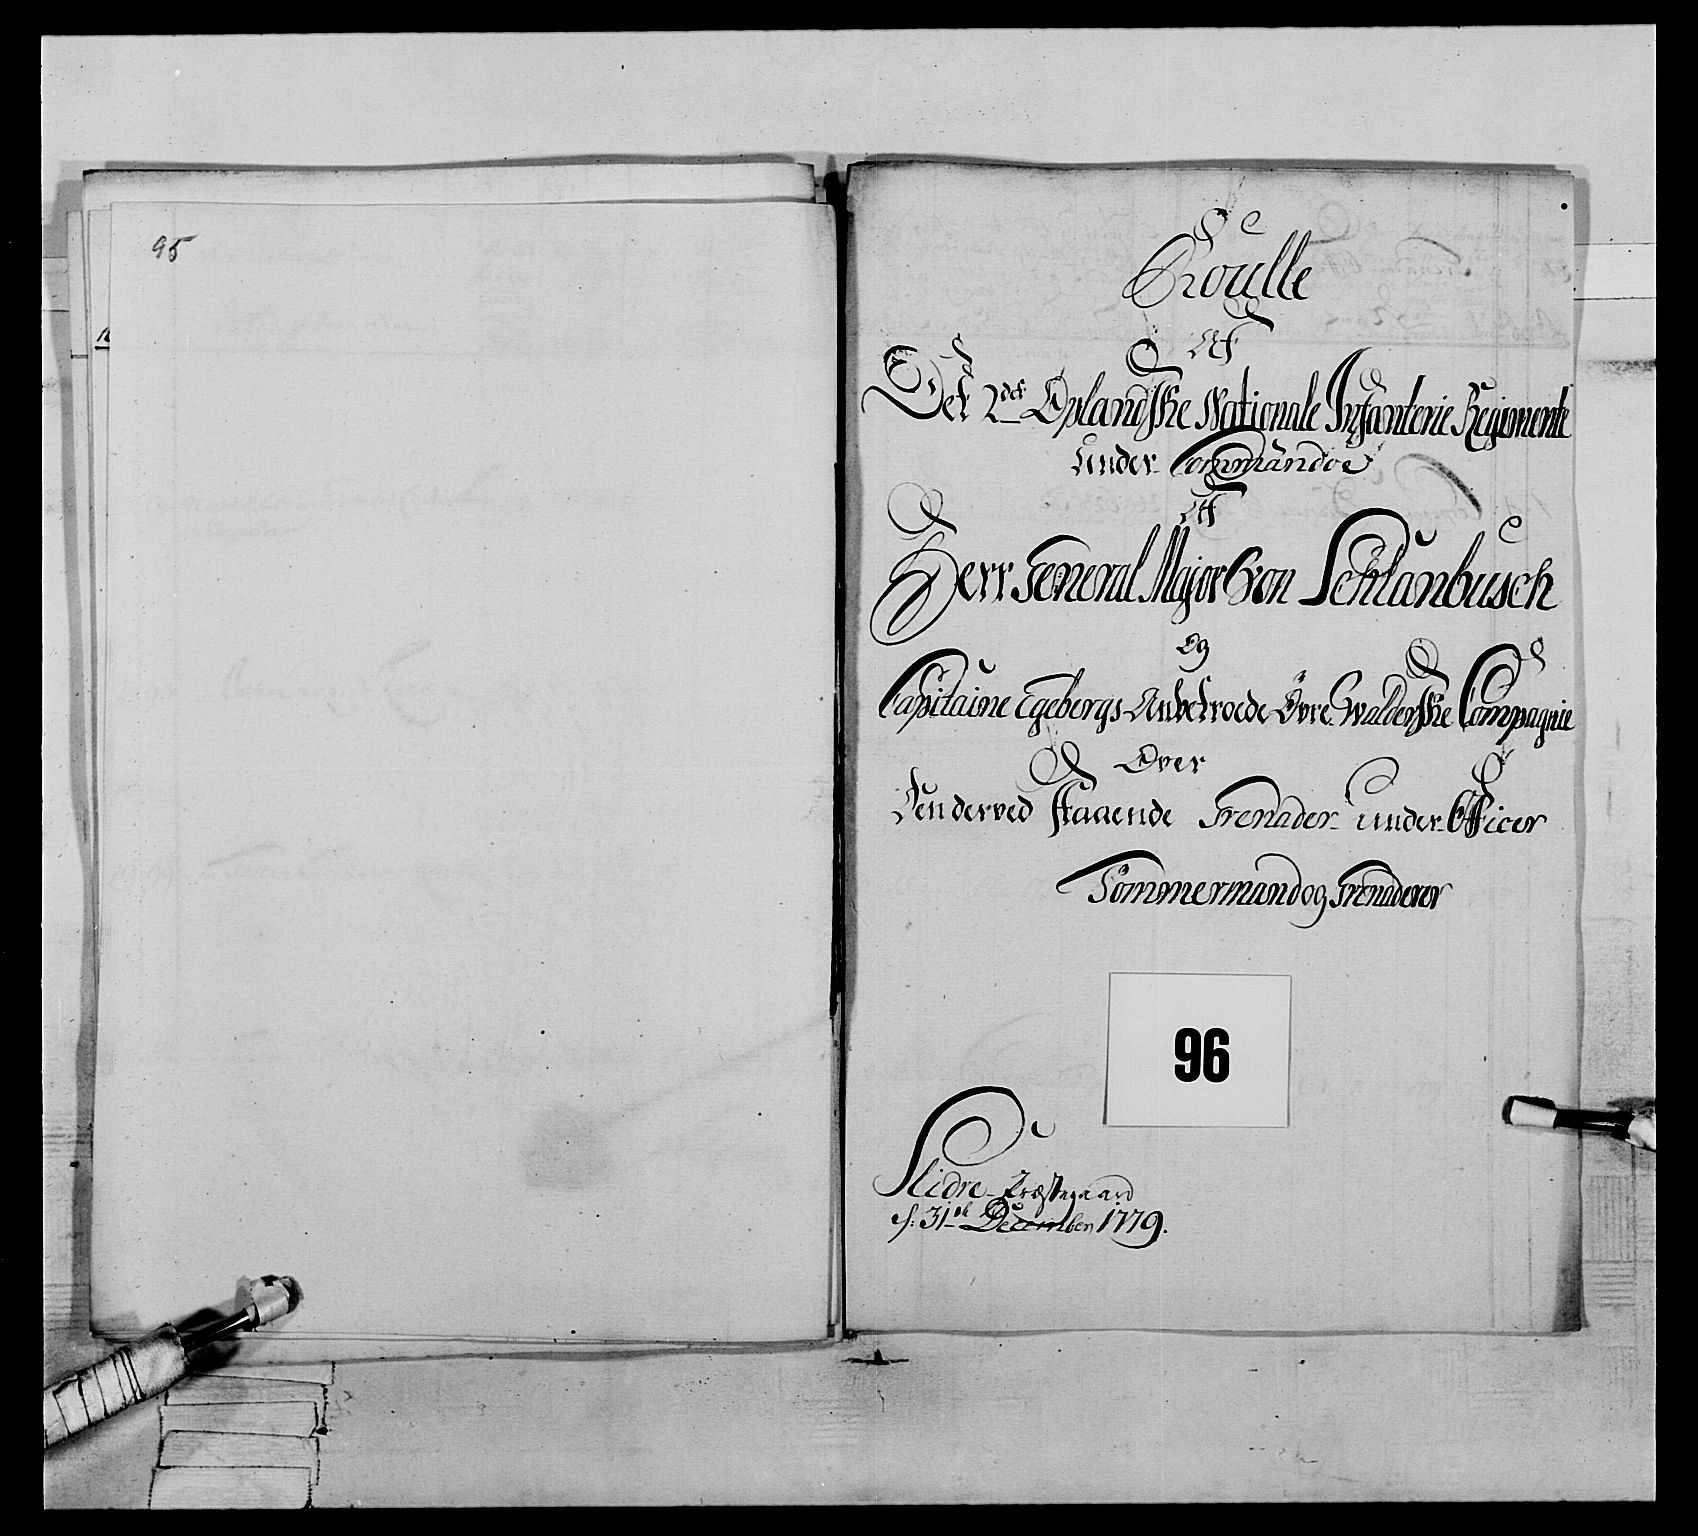 95
Roulle
Af
Det 2det Oplandske Nationale Infanterie Regimente
under Commandoe
Af
Herr General Major Von Schlanbusch
Og
Capitaine Egebergs Anbetroede Övre Walderske Compagnie
Over
Denderved staaende Grenader under Officer
Tömmermand og Grenaderer
96
Slidre Præstegaard
d: 31te December 1779.